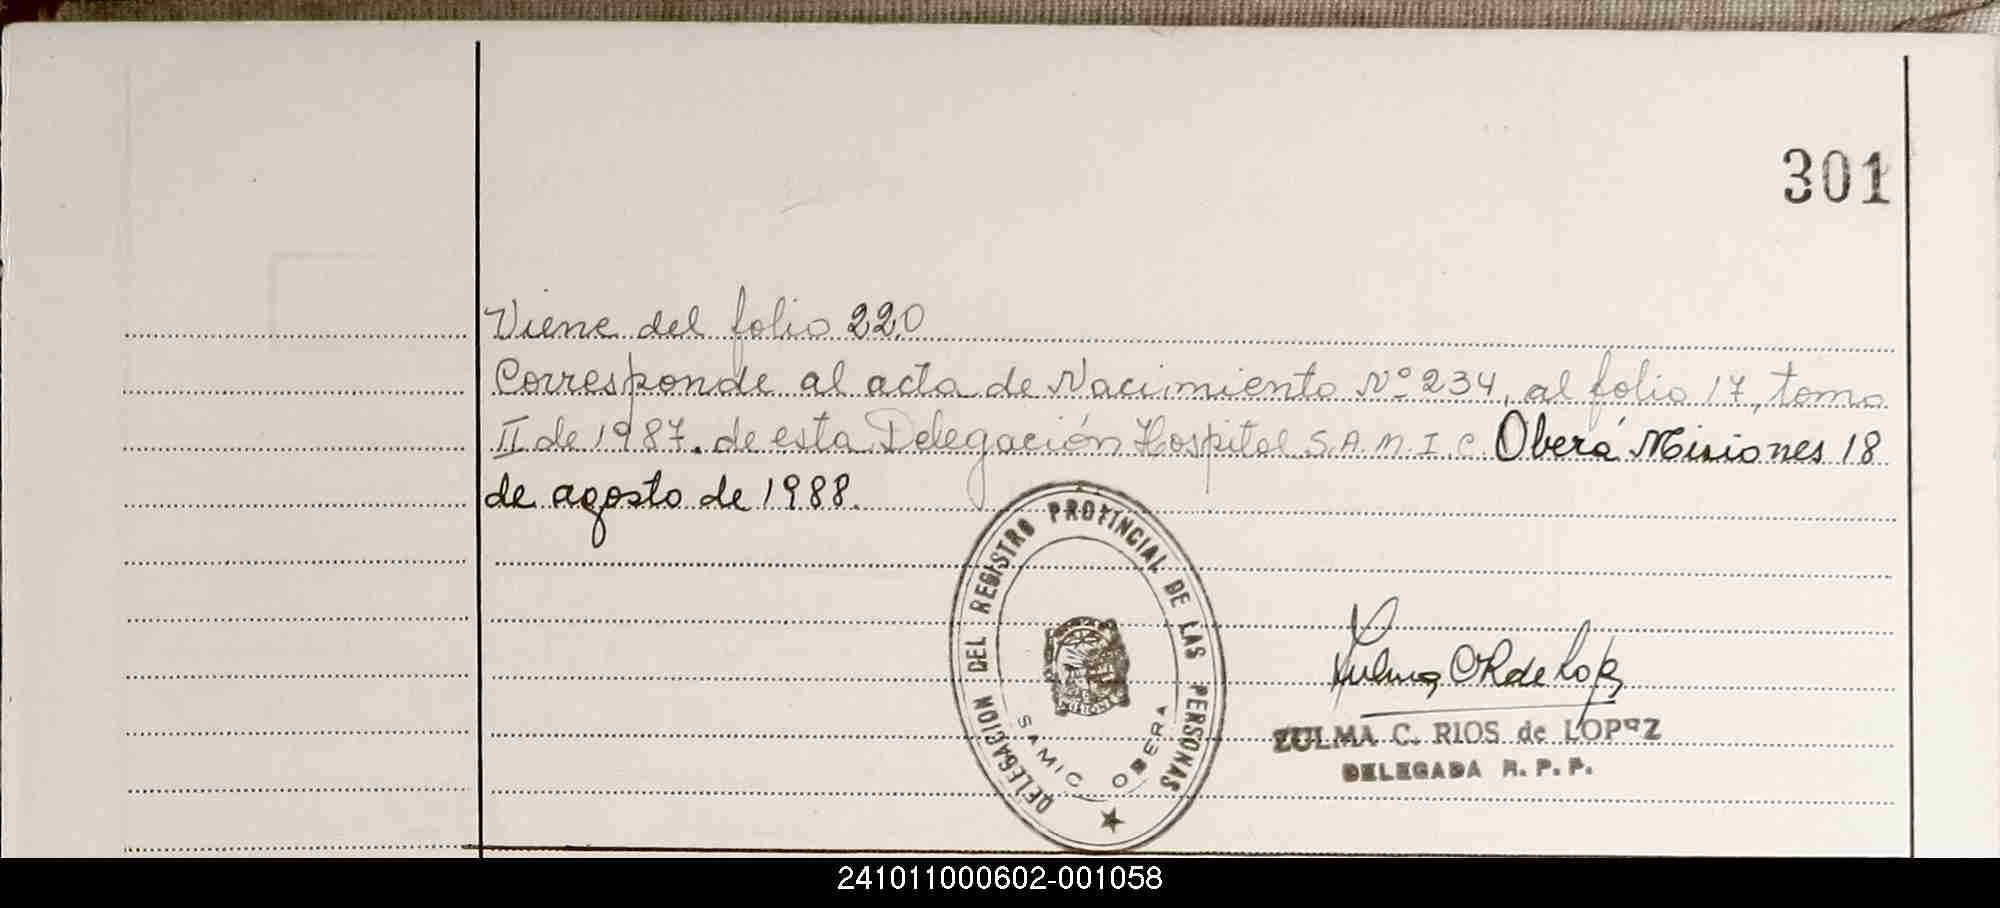 301
Viene del folio 220
Corresponde al acta de Nacimiento Nº 234, al folio 17, tomo
II de 1987. de esta Delegación Hospital S.A.M.I.C. Oberá Misiones 18
de agosto de 1988.
DELEGACION DEL REGISTRO PROVINCIAL DE LAS PERSONAS
SAMIC OBERA
MISIONES
Zulma C R de Lopez
ZULMA C. RIOS de LOPEZ
DELEGADA R. P. P.
241011000602-001058